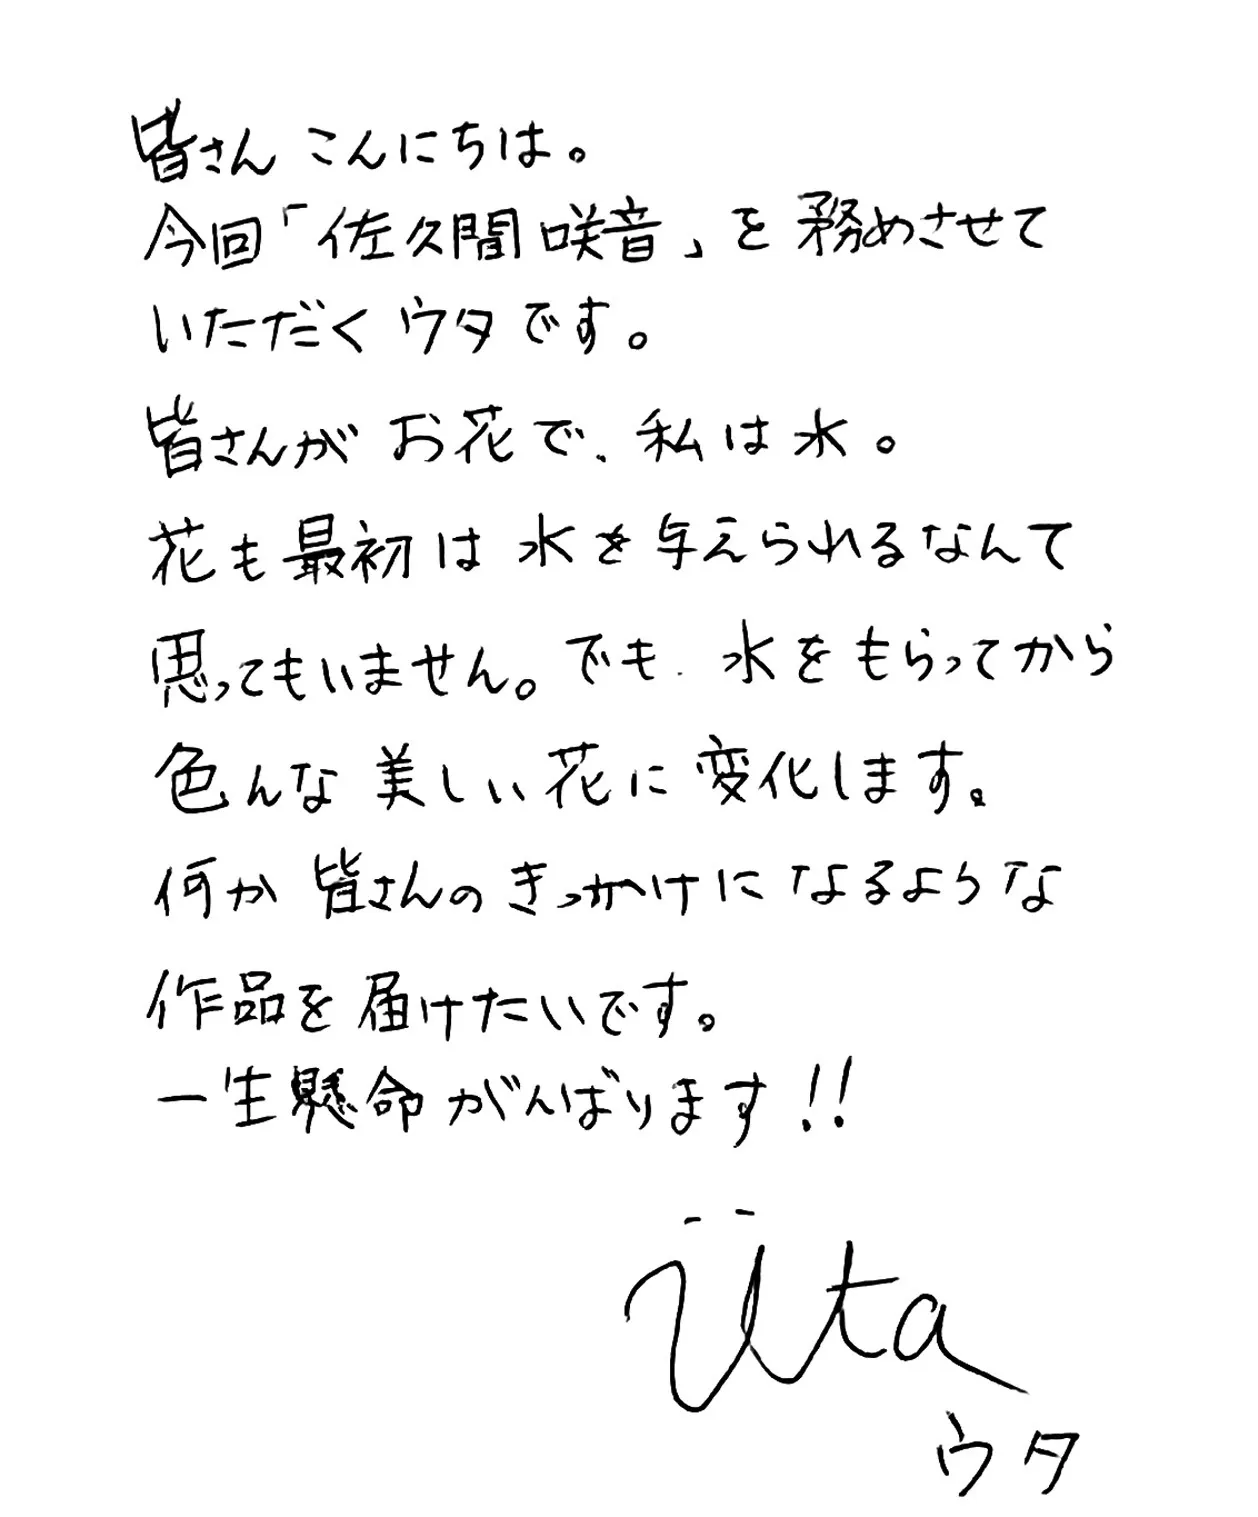 皆さん こんにちは。
今回「佐久間 咲音」を 務めさせて
いただく ウタです。
皆さんが お花で、私は水。
花も最初は 水を与えられるなんて
思ってもいません。でも、水をもらってから
色んな 美しい花に変化します。
何か 皆さんの きっかけになるような
作品を届けたいです。
一生懸命がんばります!!
üta
ウタ